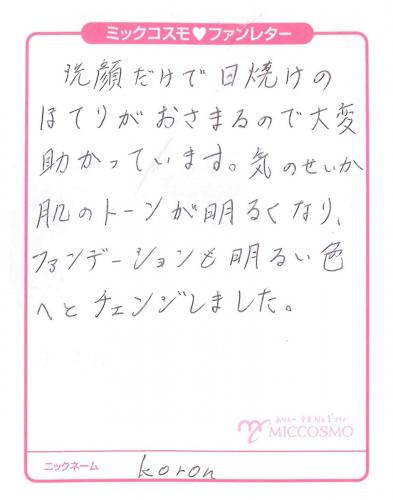 ミックコスモ♥ファンレター
洗顔だけで日焼けの
ほてりがおさまるので大変
助かっています。気のせいか
肌のトーンが明るくなり、
ファンデーションも明るい色
へとチェンジしました。
MICCOSMO
ニックネーム koron